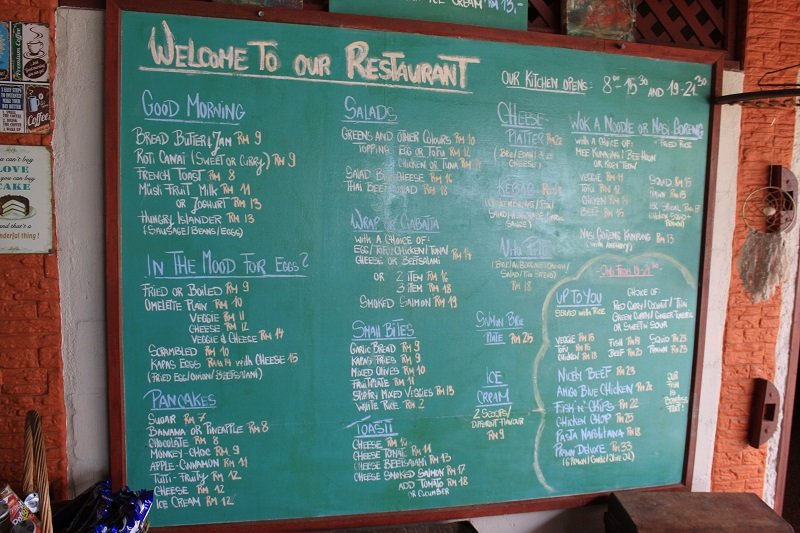 ICE CREAM RM 13,-
WELCOME TO OUR RESTAURANT
OUR KITCHEN OPENS: 8:00-15:30 AND 19-21:30
GOOD MORNING
BREAD BUTTER & JAM RM 9
ROTI CANAI (SWEET OR CURRY) RM 9
FRENCH TOAST RM 8
MUSLI FRUIT MILK RM 11
OR YOGHURT RM 13
HUNGRY ISLANDER RM 13
(SAUSAGE/BEANS/EGGS)
IN THE MOOD FOR EGGS?
FRIED OR BOILED RM 9
OMELETTE PLAIN RM 10
VEGGIE RM 11
CHEESE RM 12
VEGGIE & CHEESE RM 14
SCRAMBLED RM 10
KAPAS EGGS RM 14 WITH CHEESE 15
(FRIED EGG/ONION/BEEFSALAMI)
PANCAKES
SUGAR RM 7
BANANA OR PINEAPPLE RM 8
CHOCOLATE RM 8
MONKEY-CHOC RM 9
APPLE-CINNAMON RM 11
TUTTI-FRUITY RM 12
CHEESE RM 12
ICE CREAM RM 12
SALADS
GREENS AND OTHER COLOURS RM 10
TOPPING EGG OR TOFU RM 12
CHICKEN OR TUNA RM 14
SALAD BLUE CHEESE RM 16
THAI BEEF SALAD RM 18
WRAP OR CIABATTA
WITH A CHOICE OF:
EGG/TOFU/CHICKEN/TUNA/ RM 14
CHEESE OR BEEFSALAMI
OR 2 ITEM RM 16
3 ITEM RM 18
SMOKED SALMON RM 19
SMALL BITES
GARLIC BREAD RM 9
KAPAS FRIES RM 9
MIXED OLIVES RM 10
FRUITPLATE RM 11
STIRFRY MIXED VEGGIES RM 13
WHITE RICE RM 2
TOAST
CHEESE RM 10
CHEESE TOMATE RM 11
CHEESE BEEFSALAMI RM 13
CHEESE SMOKED SALMON RM 17
ADD TOMATO RM 18
OR CUCUMBER
CHEESE
PLATTER
KEBAB
RM 18
RM 25
ICE
CREAM
2 SCOOPS/
DIFFERENT FLAVOUR
RM 9
WOK A NOODLE OR NASI GORENG
FRIED RICE
WITH A CHOICE OF:
MEE KUNING/BEEHOON
OR KUEH TEOW
VEGGIE RM 11
TOFU RM 12
CHICKEN RM 14
BEEF RM 15
SQUID RM 15
NASI GORENG KAMPUNG
(WITH ANCHOVY) RM 13
UP TO YOU
SERVED WITH RICE
CHOICE OF:
VEGGIE RM 15
CHICKEN RM 18
FISH RM 18
BEEF RM 20
SQUID RM 23
NICELY BEEF RM 23
AHGO BLUE CHICKEN RM 26
FISH N' CHIPS RM 22
CHICKEN CHOP RM 25
PASTA NAPOLITANA RM 18
PRAWN DELUXE RM 33
Premium Coffee
Coffee
YOU CAN'T BUY
LOVE
you can buy
CAKE
and that's a
wonderful thing!